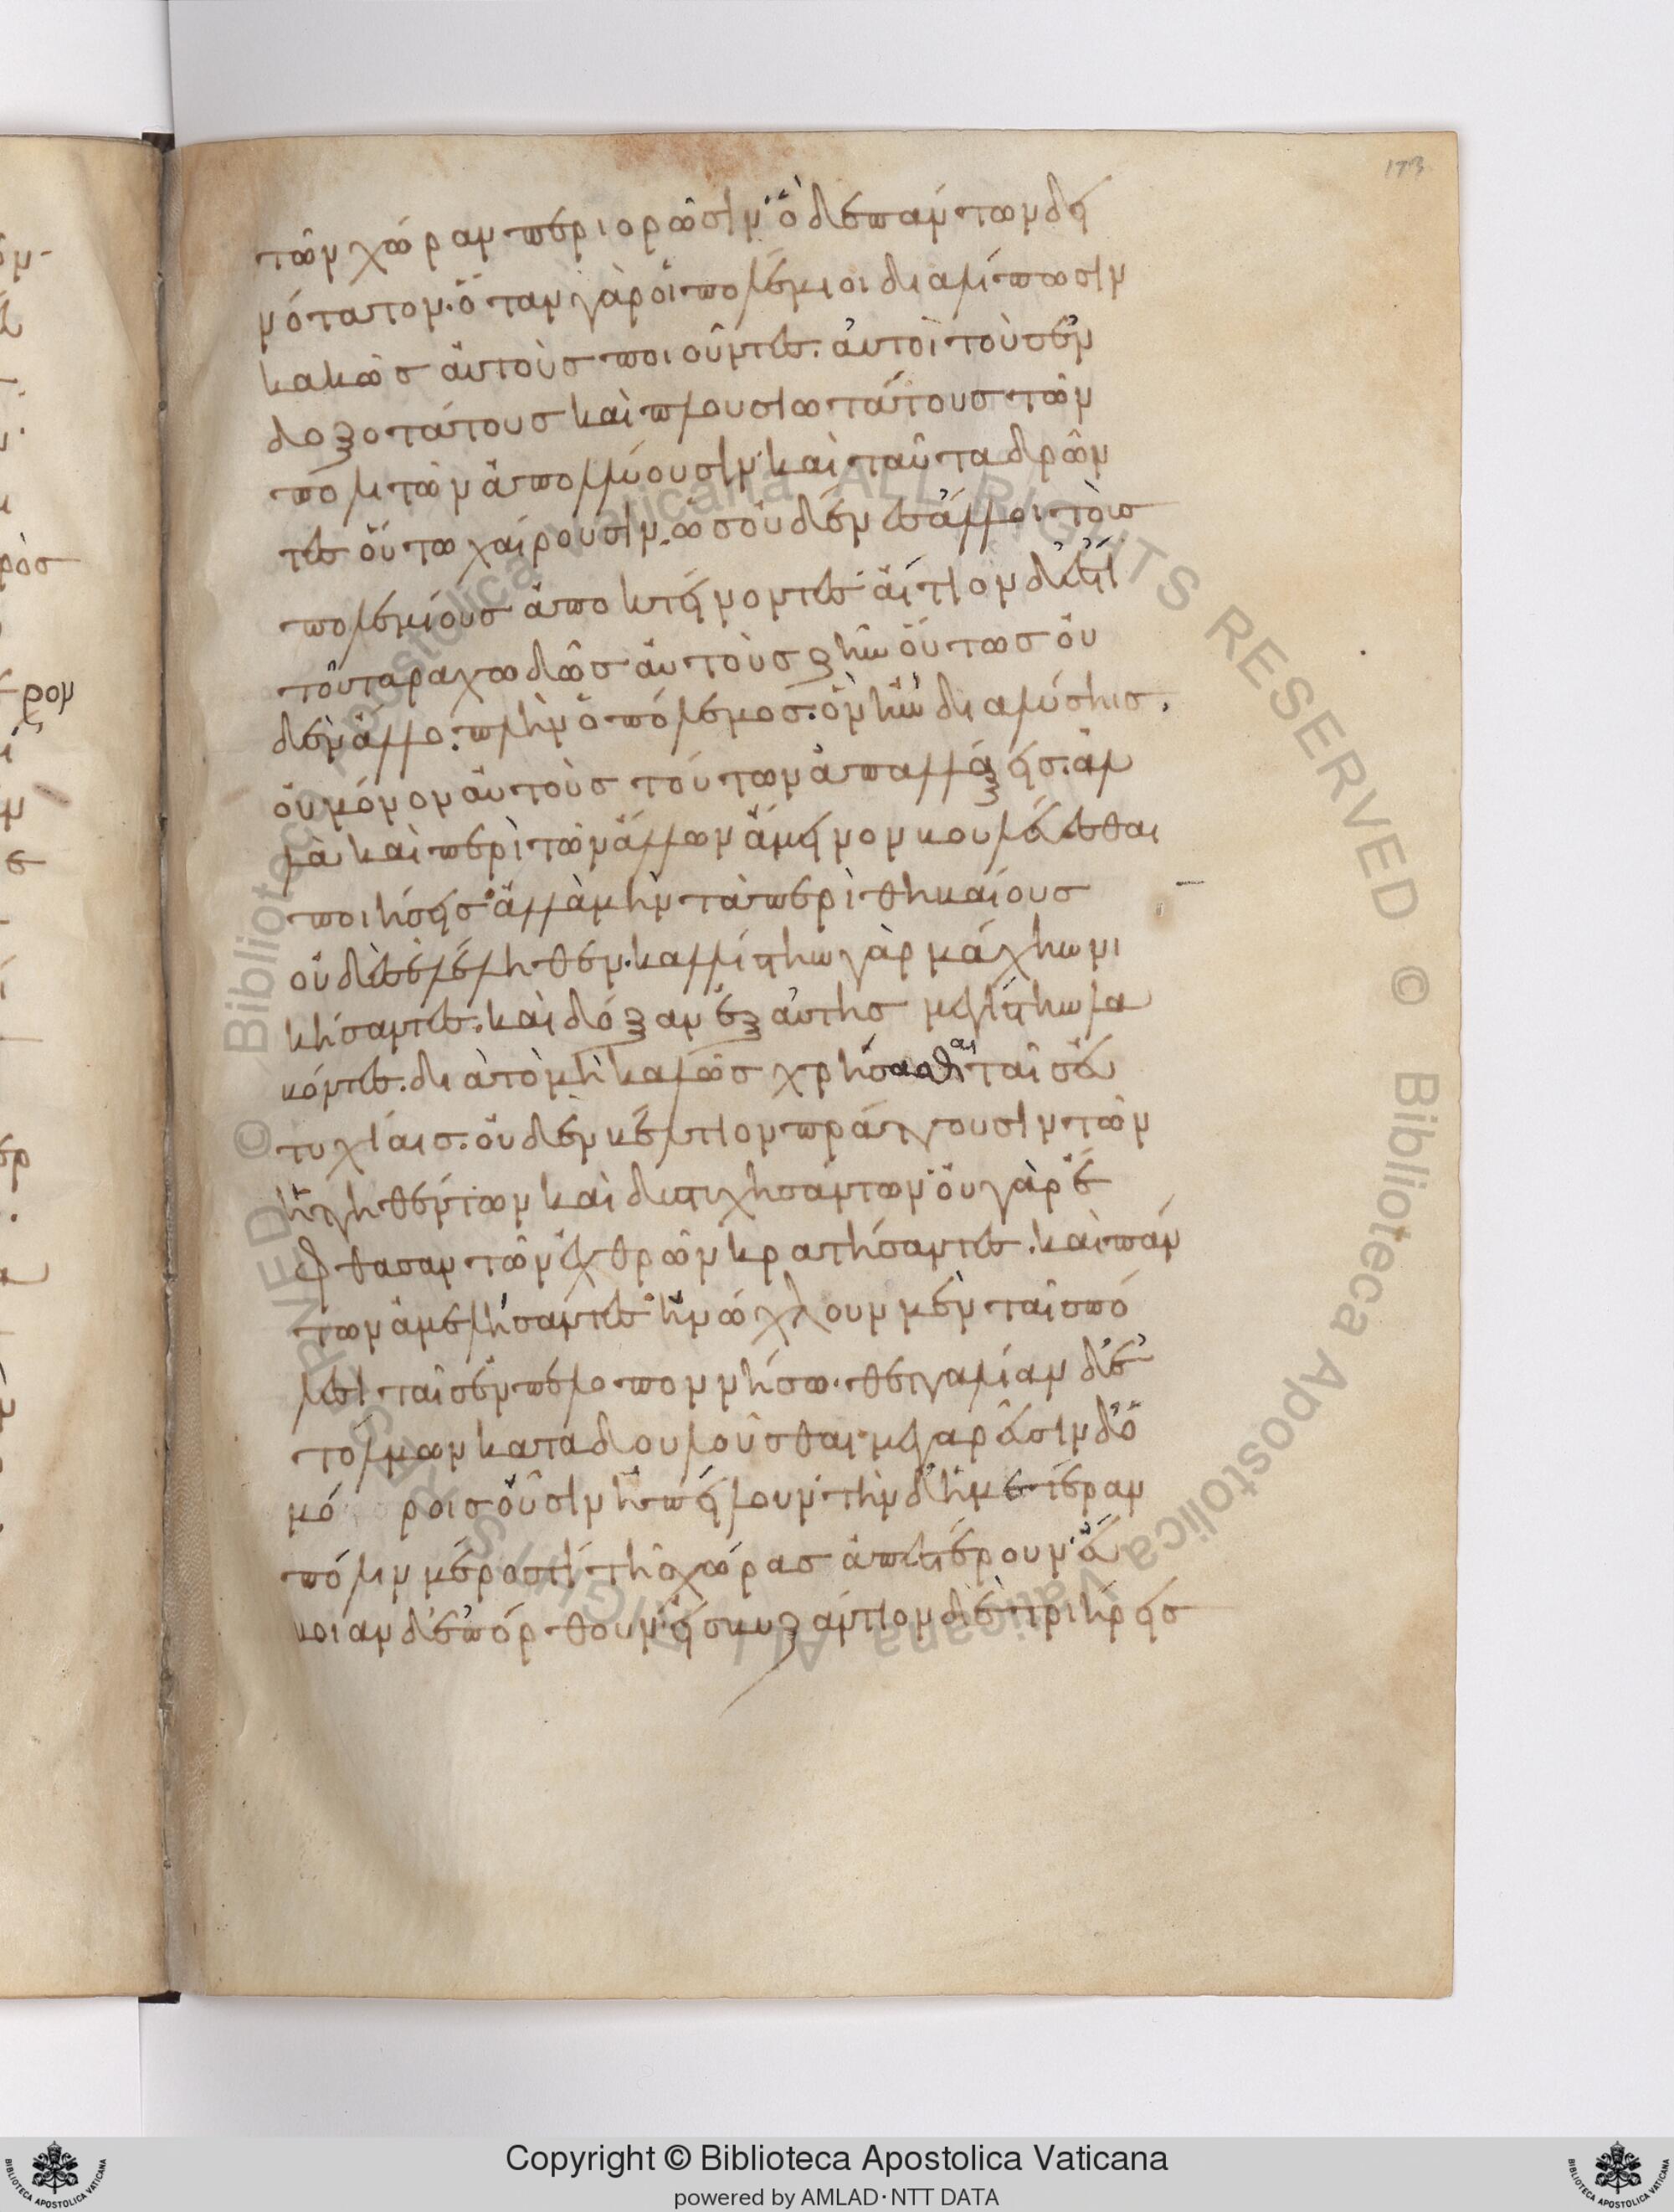 173
τῶν χώραν περιορῶσιν· ὁ δὲ πάντων δει
νότατον· ὅταν γὰρ οἱ πολέμιοι διαλίπωσιν
κακῶς αὐτοὺς ποιοῦντες· αὐτοὶ τοὺς ἐν
δοξοτάτους καὶ πλουσιωτάτους τῶν
πολιτῶν ἀπολλύουσιν· καὶ ταῦτα δρῶν
τες οὕτω χαίρουσιν· ὡς οὐδένες ἄλλοι τοὺς
πολεμίους ἀποκτείνοντες· αἴτιον δ' ἐστὶ
τοῦ ταραχωδῶς αὐτοὺς ζῆν οὕτως οὐ
δὲν ἄλλο· πλὴν ὁ πόλεμος· ὃν ἢν διαλύσηις·
οὐ μόνον αὐτοὺς τούτων ἀπαλλάξεις· ἀλ
λὰ καὶ περὶ τῶν ἄλλων ἄμεινον βουλεύεσθαι
ποιήσεις· ἀλλὰ μὴν τὰ περὶ θηβαίους
οὐδέ σε λέληθεν· καλλίστην γὰρ μάχην νι
κήσαντες· καὶ δόξαν ἐξ αὐτῆς μεγίστην λα
βόντες· διὰ τὸ μὴ καλῶς χρῆσθαι ταῖς εὐ
τυχίαις· οὐδὲν βέλτιον πράττουσιν τῶν
ἡττηθέντων καὶ δυστυχησάντων· οὐ γὰρ ἔ
φθασαν τῶν ἐχθρῶν κρατήσαντες· καὶ πάν
των ἀμελήσαντες ἠνώχλουν μὲν ταῖς πό
λεσι ταῖς ἐν πελοποννήσω· θετταλίαν δ' ἐ
τόλμων καταδουλοῦσθαι· μεγαρεῦσιν δ' ὁ
μόροις οὖσιν ἠπείλουν· τὴν δ' ἡμετέραν
πόλιν μέρος τι τῆς χώρας ἀπεστέρουν· εὔ
βοιαν δ' ἐπόρθουν· εἰς βυζάντιον δὲ τριήρεις